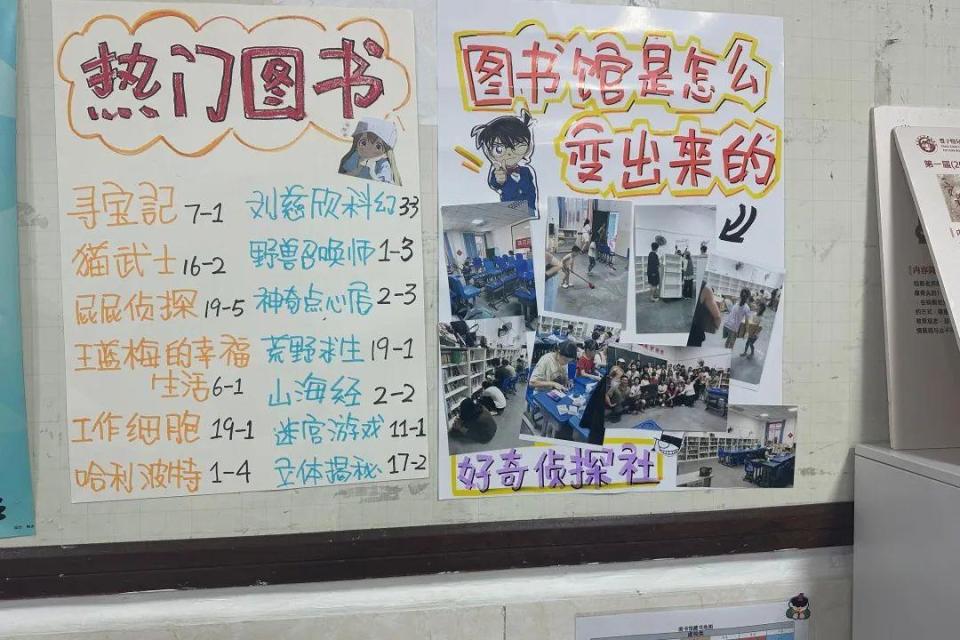 热门图书
寻宝記 7-1
猫武士 16-2
屁屁侦探 19-5
王蓝梅的幸福
生活 6-1
工作细胞 19-1
哈利波特 1-4
刘慈欣科幻 33
野兽召唤师 1-3
神奇点心店 2-3
荒野求生 19-1
山海经 2-2
迷宫游戏 11-1
立体揭秘 17-2
图书馆是怎么
变出来的
好奇侦探社
第一届(2
内容简